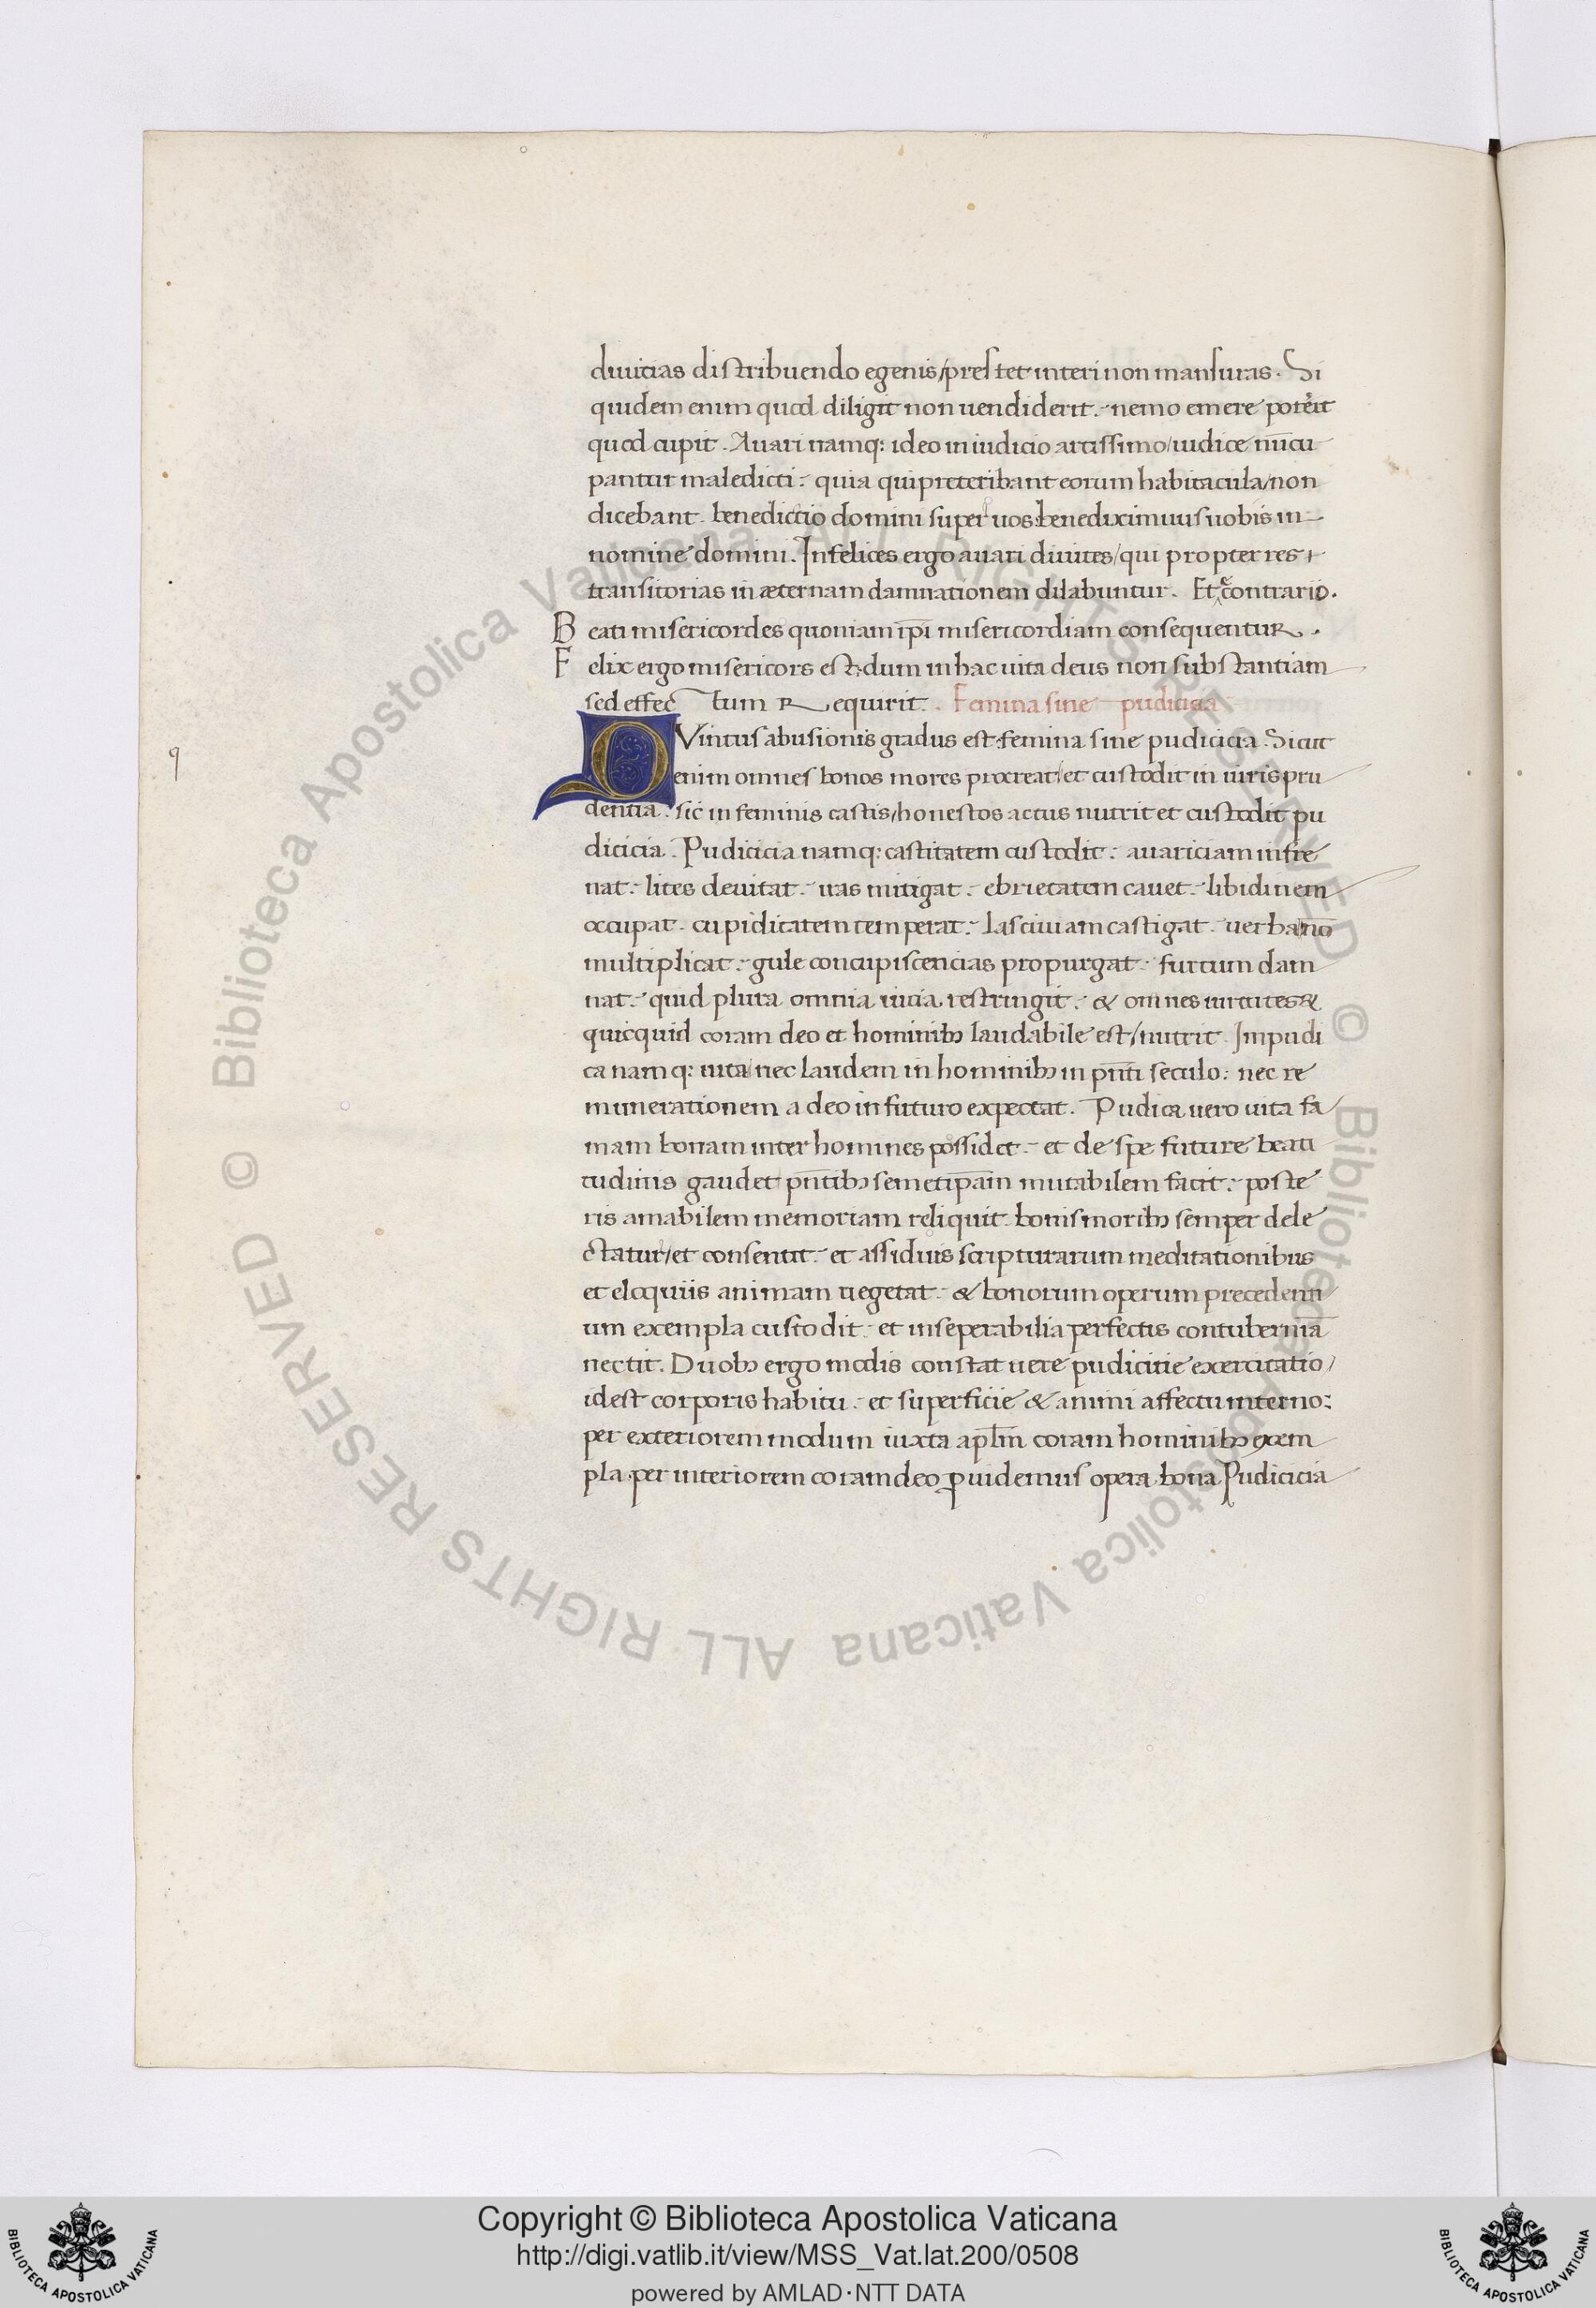 diuicias distribuendo egenis/prestet interi non mansuras. Si
quidem enim quod diligit non uendiderit. nemo emere poterit
quod cupit. Auari namq: ideo in iudicio artissimo/iudice nūcu
pantur maledicti: quia qui preteribant eorum habitacula/non
dicebant. benedictio domini super uos: benediximus uobis in
nomine domini. Infelices ergo auari diuites/qui propter res
transitorias in æternam damnationem dilabuntur. Et e contrario.
Beati misericordes quoniam ip̄i misericordiam consequentur.
Felix ergo misericors est: dum in hac uita deus non substantiam
sed effectum Requirit. Femina sine pudicicia
QVintus abusionis gradus est: femina sine pudicicia. Sicut
enim omnes bonos mores procreat/et custodit in uiris pru
dentia. sic in feminis castis/honestos actus nutrit et custodit pu
dicicia. Pudicicia namq: castitatem custodit: auariciam infre
nat: lites deuitat: iras mitigat: ebrietatem cauet: libidinem
occupat. cupiditatem temperat: lasciuiam castigat. uerba nō
multiplicat: gule concupiscencias propurgat: furtum dam
nat: quid plura omnia uicia restringit: & omnes uirtutes &
quicquid coram deo et hominibꝫ laudabile est/nutrit. Impudi
ca namq: uita nec laudem in hominibꝫ in pn̄ti seculo: nec re
munerationem a deo in futuro expectat. Pudica uero uita fa
mam bonam inter homines possidet: et de spe future beati
tudinis gaudet pn̄tibꝫ semetip̄am mutabilem facit: poste
ris amabilem memoriam reliquit. bonis moribꝫ semper dele
ctatur/et consentit: et assiduis scripturarum meditationibus
et eloquiis animam uegetat: & bonorum operum precedenti
um exempla custodit: et inseperabilia perfectis contubernia
nectit. Duobꝫ ergo modis constat uere pudicitie exercitatio/
idest corporis habitu: et superficie & animi affectu interno:
per exteriorem modum iuxta apl̄m coram hominibꝫ exem
pla. per interiorem coram deo ꝓuidemus opera bona. Pudicicia
9
© Biblioteca Apostolica Vaticana ALL RIGHTS RESERVED © Biblioteca Apostolica Vaticana ALL RIGHTS RESERVED
Copyright © Biblioteca Apostolica Vaticana
http://digi.vatlib.it/view/MSS_Vat.lat.200/0508
powered by AMLAD·NTT DATA
BIBLIOTECA APOSTOLICA VATICANA
BIBLIOTECA APOSTOLICA VATICANA